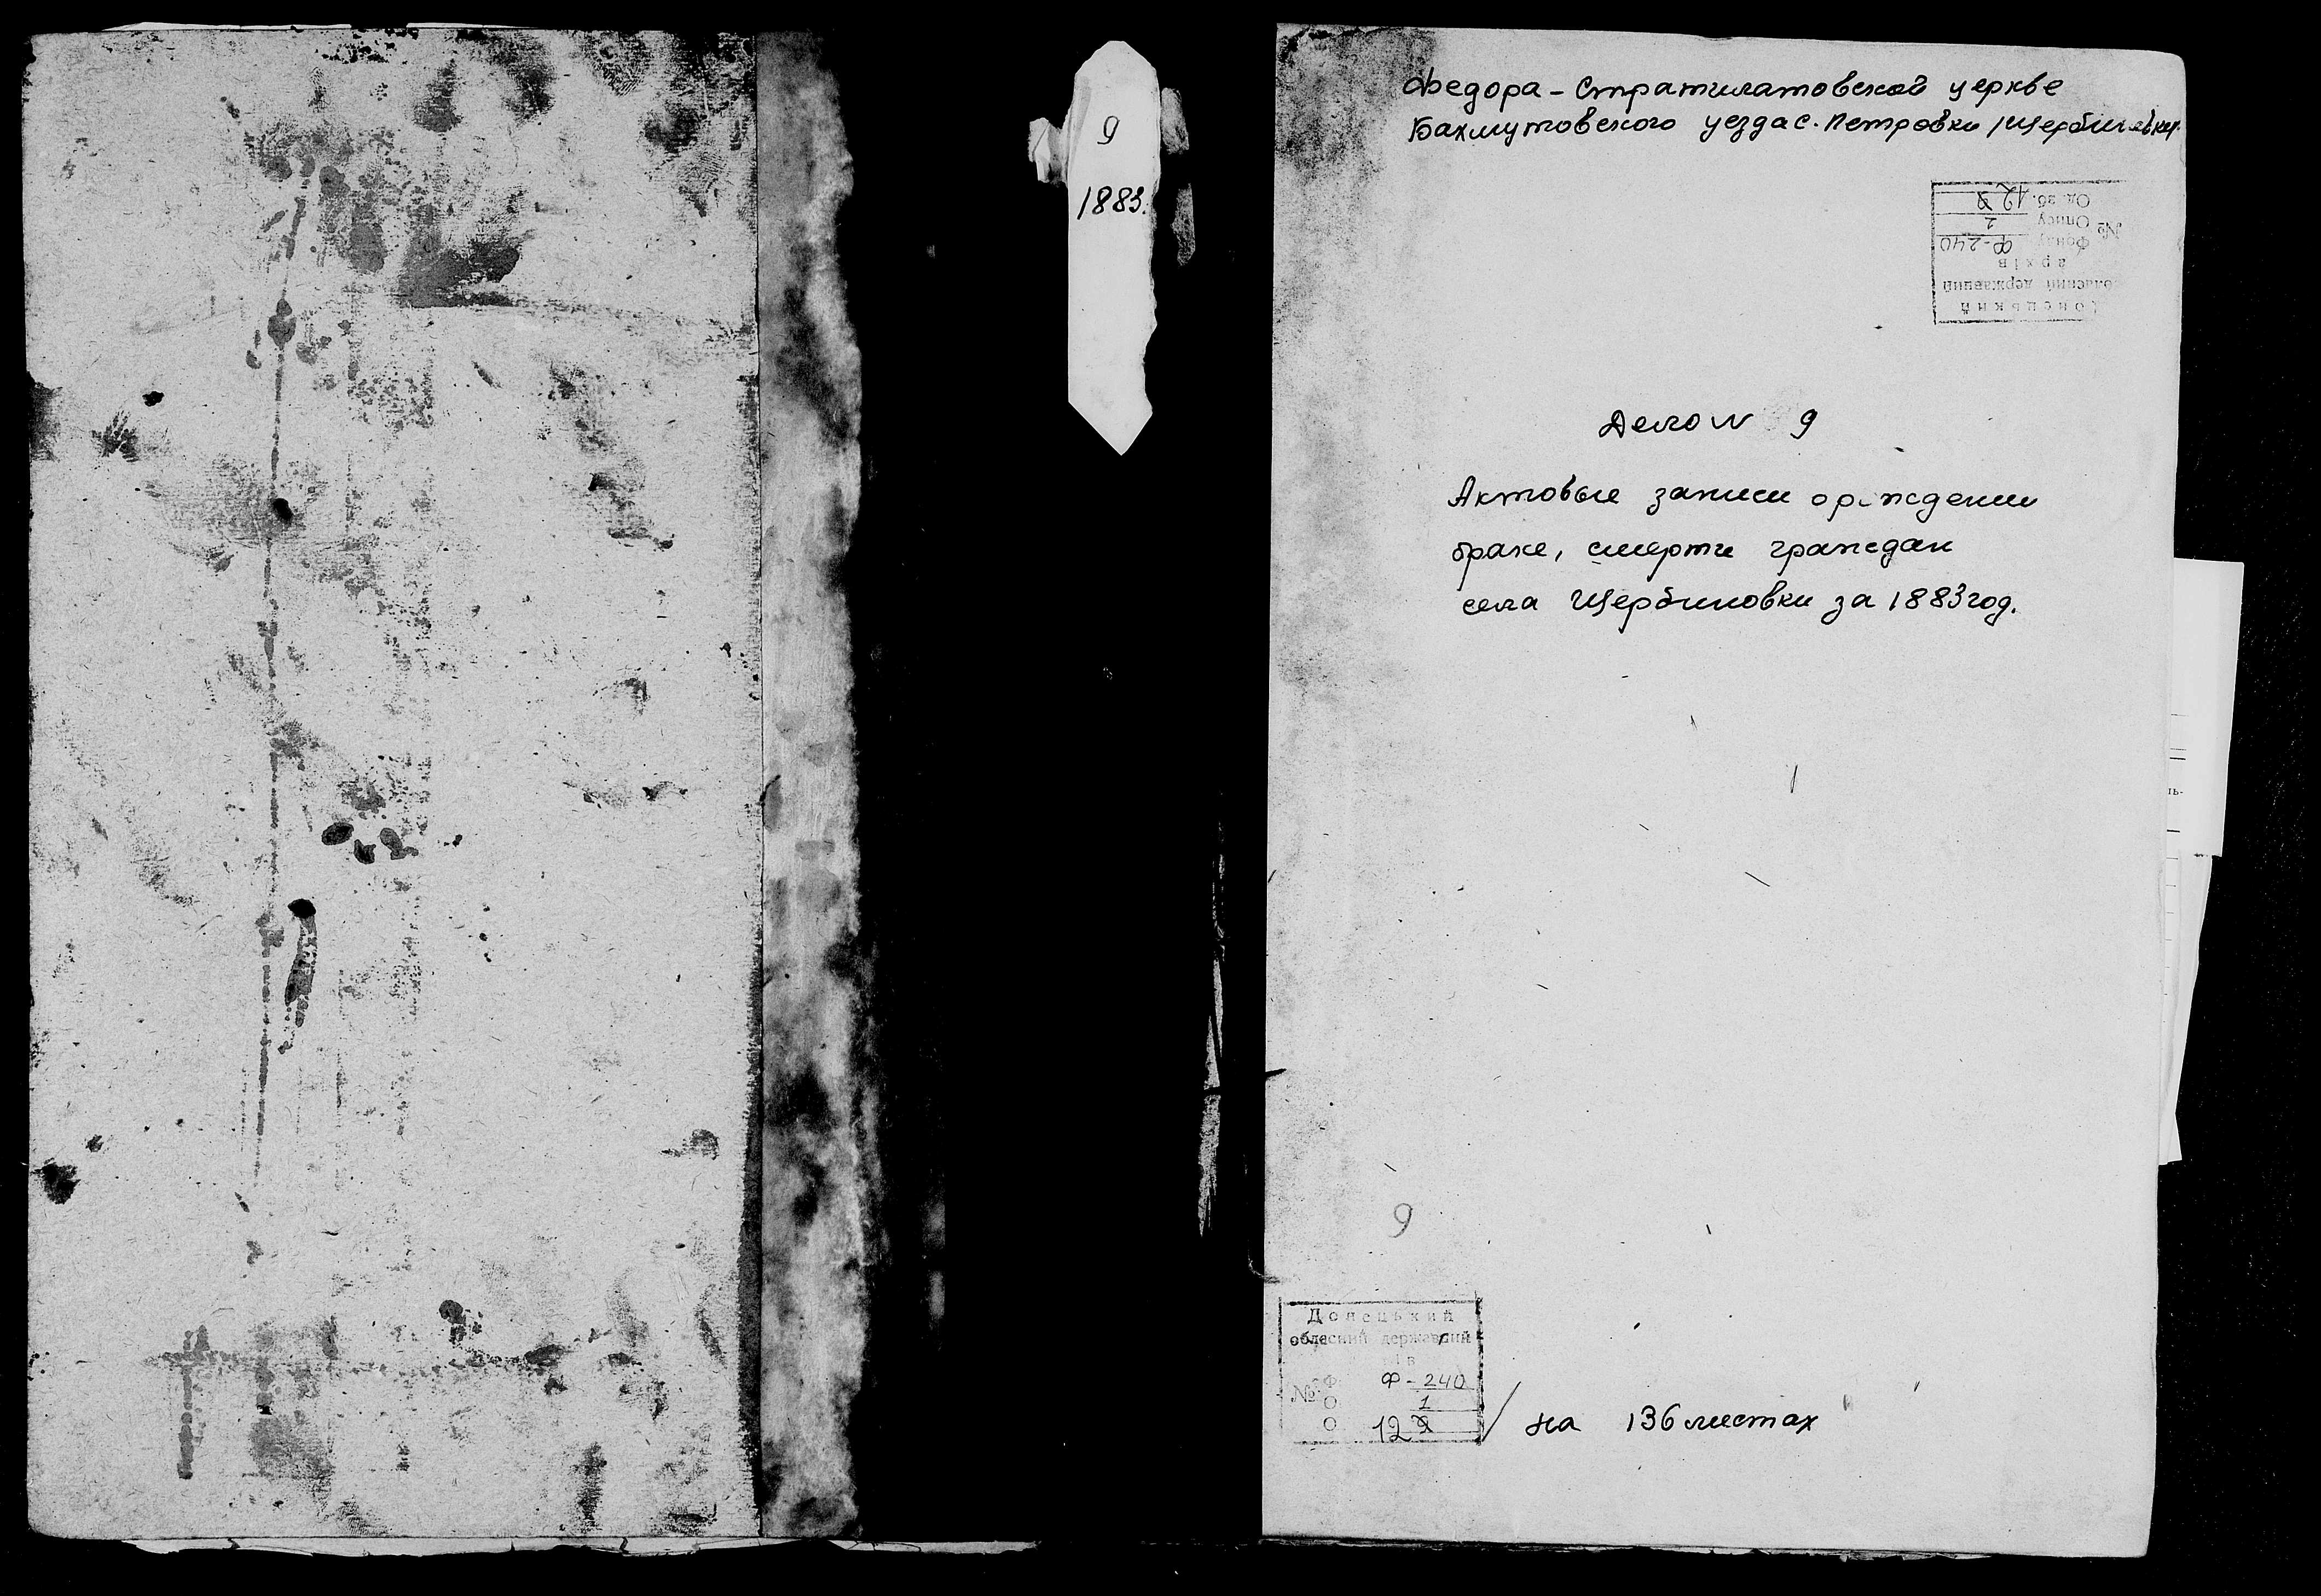 9
1883.
Федора-Стратилатовской церкве
Бахмутовского уезда с. Петровки /Щербиновки/
Донецький
обласний державний
архів
№ Фонду Ф-240
Опису 1
Од. зб. 12
Дело N 9
Актовые записи о рождении
браке, смерти граждан
села Щербиновки за 1883 год.
ль-
9
Донецький
обласний державний
ів
№ Ф Ф-240
О 1
О 12
на 136 листах